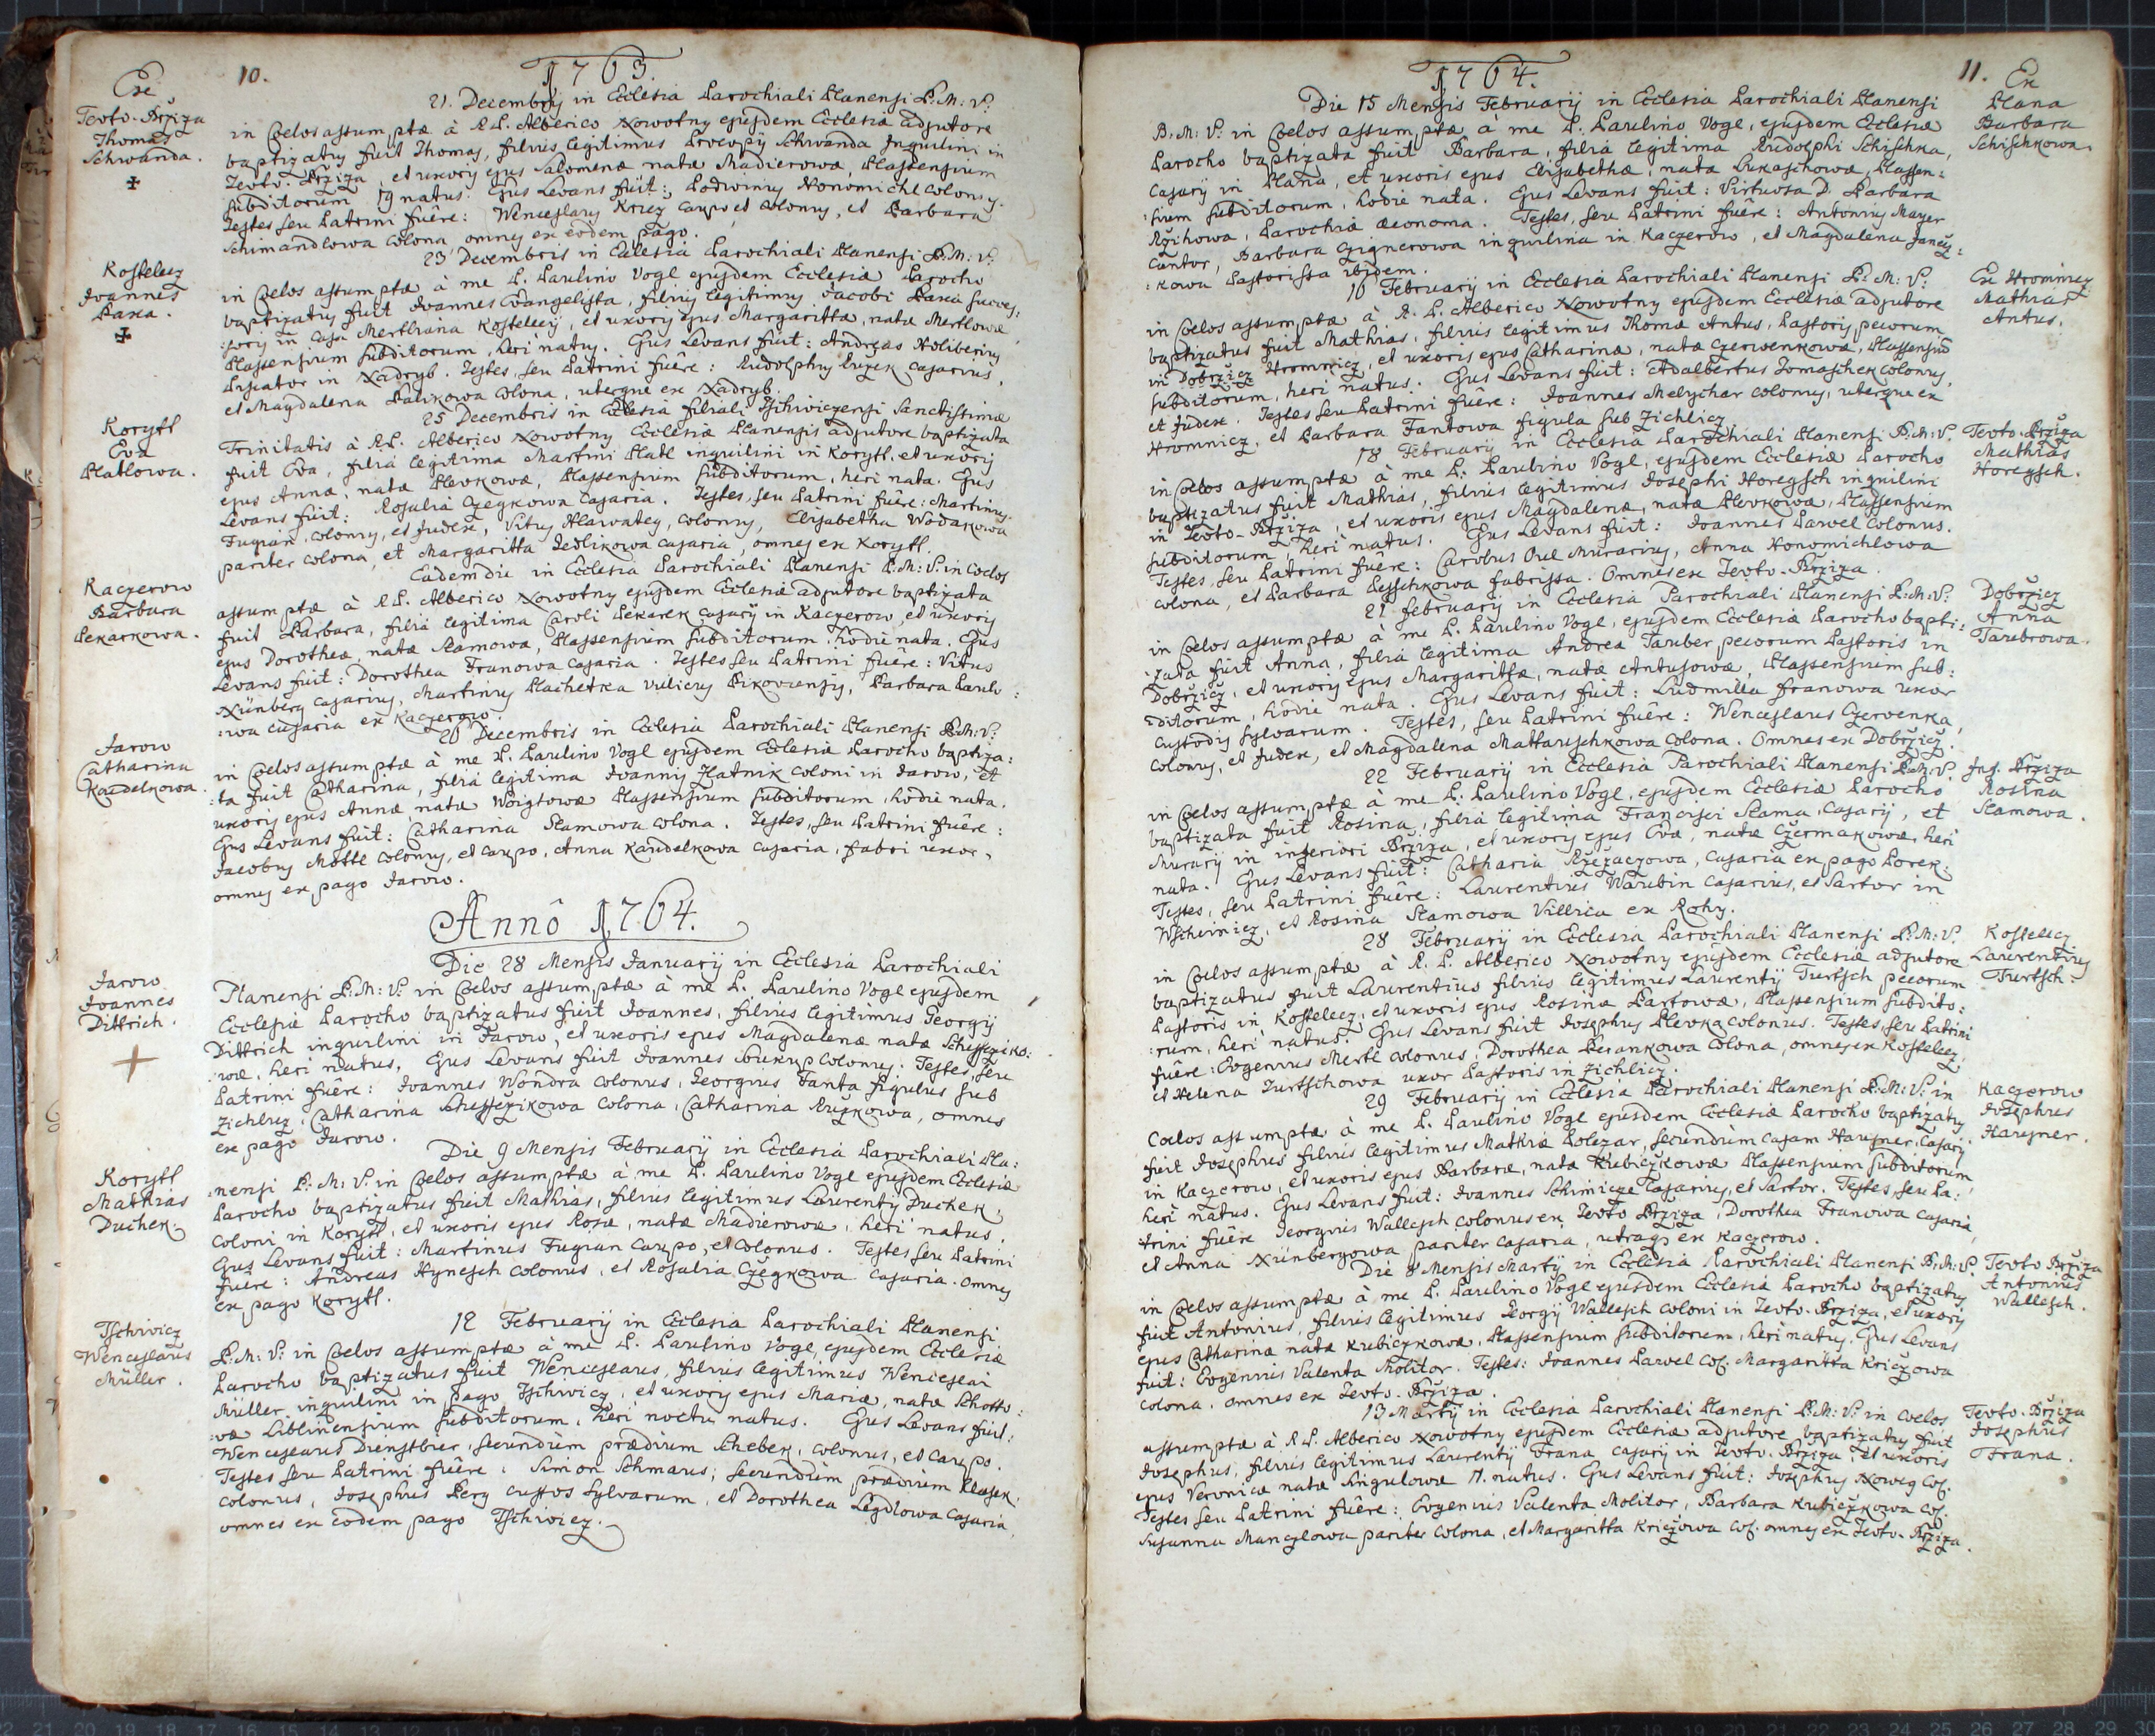 10.
1763.
Ex
Teuto-Brziza
Thomas
Schwanda.
21. Decembris in Ecclesia Parochiali Planensi B: M: V:
in Coelos assumptæ à R.P. Alberico Nowotny ejusdem Ecclesiæ adjutore
baptizatus fuit Thomas, filius legitimus Procopij Schwanda Inquilini in
Teuto-Brziza, et uxoris ejus Salomenæ natæ Madierowæ, Plassensium
subditorum 19 natus. Ejus Levans fuit: Ludovicus Honomichl Colonus.
Testes seu Patrini fuêre: Wenceslaus Kriez caupo et colonus, et Barbara
Schimandlowa colona, omnes ex eodem pago.
Kosteletz
Joannes
Paxa.
23 Decembris in Ecclesia Parochiali Planensi B: M: V:
in Coelos assumptæ à me P. Paulino Vogl ejusdem Ecclesiæ Parocho
baptizatus fuit Joannes Evangelista, filius legitimus Jacobi Paxa succes:
:soris in casa Mertliana Kostelecij, et uxoris ejus Margarittæ, natæ Mertlowæ
Plassensium subditorum, heri natus. Ejus Levans fuit: Andreas Holiberius
Piscator in Nadryb. Testes, seu Patrini fuêre: Rudolphus Ruzek casarius,
et Magdalena Palikowa colona, uterque ex Nadryb.
Korytl
Eva
Platlowa.
25 Decembris in Ecclesia filiali Tschiwiczensi Sanctissimæ
Trinitatis à R.P. Alberico Nowotny Ecclesiæ Planensis adjutore baptizata
fuit Eva, filia legitima Martini Platl inquilini in Korytl, et uxoris
ejus Annæ, natæ Plevkowæ, Plassensium subditorum, heri nata. Ejus
Levans fuit: Rosalia Czegkowa Casaria. Testes, seu Patrini fuêre: Martinus
Fugian, colonus, et Judex, Vitus Hlawatey, colonus, Elisabetha Wodakowa
pariter colona, et Margaritta Jedlikowa casaria, omnes ex Korytl.
Kaczerow
Barbara
Pekarkowa.
Eadem die in Ecclesia Parochiali Planensi B: M: V: in Coelos
assumptæ à R.P. Alberico Nowotny ejusdem Ecclesiæ adjutore baptizata
fuit Barbara, filia legitima Caroli Pekarek casarij in Kaczerow, et uxoris
ejus Dorotheæ, natæ Slamowa, Plassensium subditorum, hodie nata. Ejus
Levans fuit: Dorothea Franowa casaria. Testes seu Patrini fuêre: Vitus
Nünberg casarius, Martinus Plachetka villicus Bikoviensis, Barbara Paulo:
:wa casaria ex Kaczerow.
Jarow
Catharina
Kandelkowa.
26 Decembris in Ecclesia Parochiali Planensi B: M: V:
in Coelos assumptæ à me P. Paulino Vogl ejusdem Ecclesiæ Parocho baptiza:
:ta fuit Catharina, filia legitima Joannis Zlatnik coloni in Jarow, et
uxoris ejus Annæ, natæ Woigtowæ Plassensium subditorum, hodie nata.
Ejus Levans fuit: Catharina Slamowa colona. Testes, seu Patrini fuêre:
Jacobus Mottl colonus, et caupo, Anna Kandelkowa casaria, fabri uxor,
omnes ex pago Jarow.
Annô 1764.
Jarow
Joannes
Dittrich.
Die 28 Mensis Januarij in Ecclesia Parochiali
Planensi B: M: V: in Coelos assumptæ à me P. Paulino Vogl ejusdem
Ecclesiæ Parocho baptizatus fuit Joannes, filius legitimus Georgij
Dittrich inquilini in Jarow, et uxoris ejus Magdalenæ natæ Schefczeko:
:wæ, heri natus. Ejus Levans fuit Joannes Bukup Colonus. Testes seu
Patrini fuêre: Joannes Wondra colonus, Georgius Fanta figulus sub
Zichlicz, Catharina Scheffczikowa colona, Catharina Ruzkowa, omnes
ex pago Jarow.
Korytl
Mathias
Duchek.
Die 9 Mensis Februarij in Ecclesia Parochiali Pla:
:nensi B: M: V: in Coelos assumptæ à me P. Paulino Vogl ejusdem Ecclesiæ
Parocho baptizatus fuit Mathias, filius legitimus Laurentij Duchek,
coloni in Korytl, et uxoris ejus Rosæ, natæ Madierowæ, heri natus.
Ejus Levans fuit: Martinus Fugian caupo, et colonus. Testes seu Patrini
fuêre: Andreas Hynesch colonus, et Rosalia Czegkowa casaria. omnes
ex pago Korytl.
Tschiwicz
Wenceslaus
Müller.
12 Februarij in Ecclesia Parochiali Planensi
B: M: V: in Coelos assumptæ à me P. Paulino Vogl, ejusdem Ecclesiæ
Parocho baptizatus fuit Wenceslaus, filius legitimus Wenceslai
Müller inquilini in pago Tschiwicz, et uxoris ejus Mariæ, natæ Schotto:
:wæ Liblinensium subditorum, heri noctu natus. Ejus Levans fuit:
Wenceslaus Dienstbier, secundùm prædium Scheber, colonus, et caupo.
Testes seu Patrini fuêre: Simon Schmaus, secundùm prædium Klasek,
colonus, Josephus Berg custos sylvarum, et Dorothea Legdlowa casaria,
omnes ex eodem pago Tschiwicz.
1764.
11.
Ex
Plana
Barbara
Schischkowa.
Die 15 Mensis Februarij in Ecclesia Parochiali Planensi
B: M: V: in Coelos assumptæ à me P. Paulino Vogl, ejusdem Ecclesiæ
Parocho baptizata fuit Barbara, filia legitima Rudolphi Schischka,
casarij in Plana, et uxoris ejus Elisabethæ, natæ Lukaschowæ, Plassen:
:sium subditorum, hodie nata. Ejus Levans fuit: Virtuosa D. Barbara
Rzihowa, Parochiæ oeconoma. Testes, seu Patrini fuêre: Antonius Mayer
Cantor, Barbara Czignerowa inquilina in Kaczerow, et Magdalena Jancz:
:kowa Pastorissa ibidem.
Ex Hromnicz
Mathias
Antus.
16 Februarij in Ecclesia Parochiali Planensi B: M: V:
in Coelos assumptæ à R.P. Alberico Nowotny ejusdem Ecclesiæ adjutore
baptizatus fuit Mathias, filius legitimus Thomæ Antus, Pastoris pecorum
in Dobrzicz Hromnicz, et uxoris ejus Catharinæ, natæ Czerwenkowæ, Plassensiũ
subditorum, heri natus. Ejus Levans fuit: Adalbertus Tomaschek colonus,
et Judex. Testes seu Patrini fuêre: Joannes Melychar colonus, uterque ex
Hromnicz, et Barbara Fantowa figula sub Zichlicz.
Teuto-Brziza
Mathias
Horegsch.
18 Februarij in Ecclesia Parochiali Planensi B: M: V:
in Coelos assumptæ à me P. Paulino Vogl, ejusdem Ecclesiæ Parocho
baptizatus fuit Mathias, filius legitimus Josephi Horegsch inquilini
in Teuto-Brziza, et uxoris ejus Magdalenæ, natæ Plevkowæ, Plassensium
subditorum, heri natus. Ejus Levans fuit: Joannes Pawel Colonus.
Testes, seu Patrini fuêre: Carolus Oul Murarius, Anna Honomichlowa
colona, et Barbara Leschkowa fabrissa. Omnes ex Teuto-Brziza.
Dobrzicz
Anna
Taubrowa.
21 Februarij in Ecclesia Parochiali Planensi B: M: V:
in Coelos assumptæ à me P. Paulino Vogl, ejusdem Ecclesiæ Parocho bapti:
:zata fuit Anna, filia legitima Andreæ Tauber pecorum Pastoris in
Dobrzicz, et uxoris ejus Margarittæ, natæ Antusowæ, Plassensium sub:
:ditorum, hodie nata. Ejus Levans fuit: Ludmilla Franowa uxor
Custodis sylvarum. Testes, seu Patrini fuêre: Wenceslaus Czervenka,
colonus, et Judex, et Magdalena Mattauschkowa colona. Omnes ex Dobrzicz.
Inf. Brziza
Rosina
Slamowa.
22 Februarij in Ecclesia Parochiali Planensi B: M: V:
in Coelos assumptæ à me P. Paulino Vogl, ejusdem Ecclesiæ Parocho
baptizata fuit Rosina, filia legitima Francisci Slama, casarij, et
Murarij in inferiori Brziza, et uxoris ejus Evæ, natæ Czermakowæ, heri
nata. Ejus Levans fuit: Catharia Rzezaczowa, casaria ex pago Borek.
Testes, seu Patrini fuêre: Laurentius Waubin casarius, et Sartor in
Wscheinicz, et Rosina Slamowa Villica ex Rohy.
Kosteletz
Laurentius
Turtsch.
28 Februarij in Ecclesia Parochiali Planensi B: M: V:
in Coelos assumptæ à R.P. Alberico Nowotny ejusdem Ecclesiæ adjutore
baptizatus fuit Laurentius filius legitimus Laurentij Turtsch pecorum
Pastoris in Kosteletz, et uxoris ejus Rosinæ Bartowæ, Plassensium subdito:
:rum, heri natus. Ejus Levans fuit Josephus Plevka colonus. Testes, seu Patrini
fuêre: Eugenius Mertl colonus, Dorothea Berankowa colona, omnes ex Kosteletz,
et Helena Turtschowa uxor Pastoris in Zichlicz.
Kaczerow
Josephus
Hausner.
29 Februarij in Ecclesia Parochiali Planensi B: M: V: in
Coelos assumptæ à me P. Paulino Vogl ejusdem Ecclesiæ Parocho baptizatus
fuit Josephus filius legitimus Mathiæ Polczar, secundùm casam Hausner, Casarij
in Kaczerow, et uxoris ejus Barbaræ, natæ Kubiczkowæ Plassensium subditorum,
heri natus. Ejus Levans fuit: Joannes Schimicze Casarius, et Sartor. Testes, seu Pa:
:trini fuêre Georgius Wallesch colonus ex Teuto Brziza, Dorothea Franowa casaria,
et Anna Nünbergowa pariter casaria, utraq ex Kaczerow.
Teuto Brziza
Antonius
Wallesch.
Die 8 Mensis Martij in Ecclesia Parochiali Planensi B: M: V:
in Coelos assumptæ à me P. Paulino Vogl ejusdem Ecclesiæ Parocho baptizatus
fuit Antonius, filius legitimus Georgij Wallesch coloni in Teuto-Brziza, et uxoris
ejus Catharinæ natæ Kubiczkowæ, Plassensium subditorum, heri natus. Ejus Levans
fuit: Eugenius Valenta Molitor. Testes: Joannes Pawel Col. Margaritta Kriczowa
colona. omnes ex Teuto-Brziza.
Teuto-Brziza
Josephus
Frana.
13 Martij in Ecclesia Parochiali Planensi B: M: V: in Coelos
assumptæ à R.P. Alberico Nowotny ejusdem Ecclesiæ adjutore baptizatus fuit
Josephus, filius legitimus Laurentij Frana casarij in Teuto-Brziza, et uxoris
ejus Veronicæ natæ Singulowæ 11. natus. Ejus Levans fuit: Josephus Noweg Col.
Testes seu Patrini fuêre: Eugenius Valenta Molitor, Barbara Kubiczkowa Col.
Susanna Manczlowa pariter colona, et Margaritta Kriczowa Col. omnes ex Teuto-Brziza.